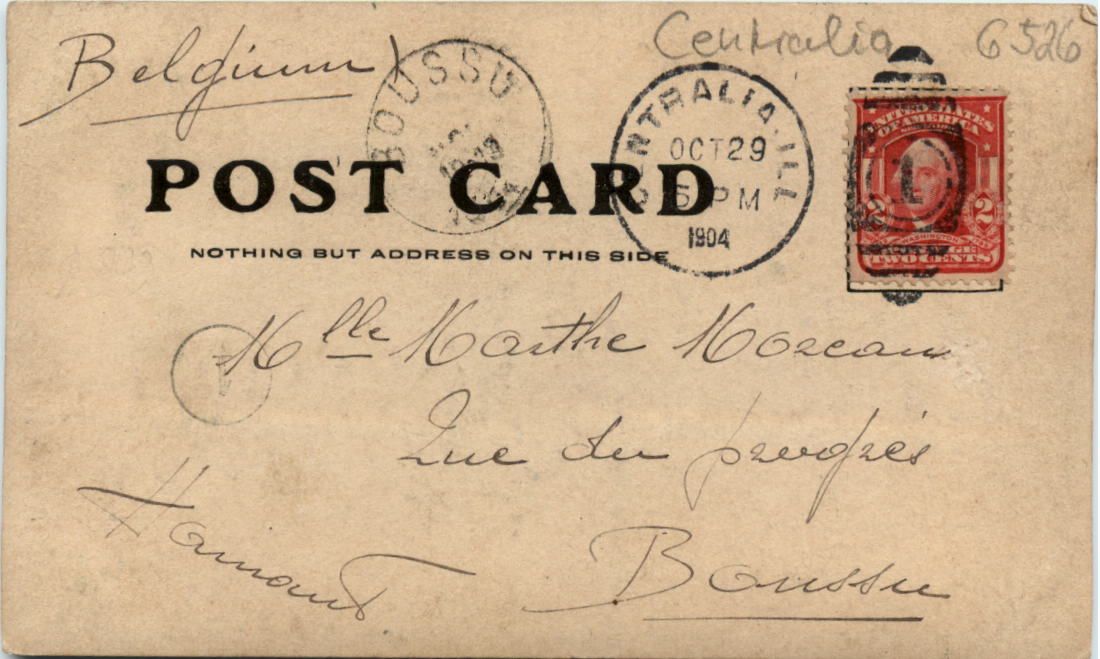 Centralia 6526
Belgium
BOUSSU
CENTRALIA, ILL.
OCT 29
5 PM
1904
UNITED STATES
OF AMERICA
2 WASHINGTON 2
TWO CENTS
1
POST CARD
NOTHING BUT ADDRESS ON THIS SIDE
Mlle Marthe Moreau
Rue du progrès
Boussu
Hainaut